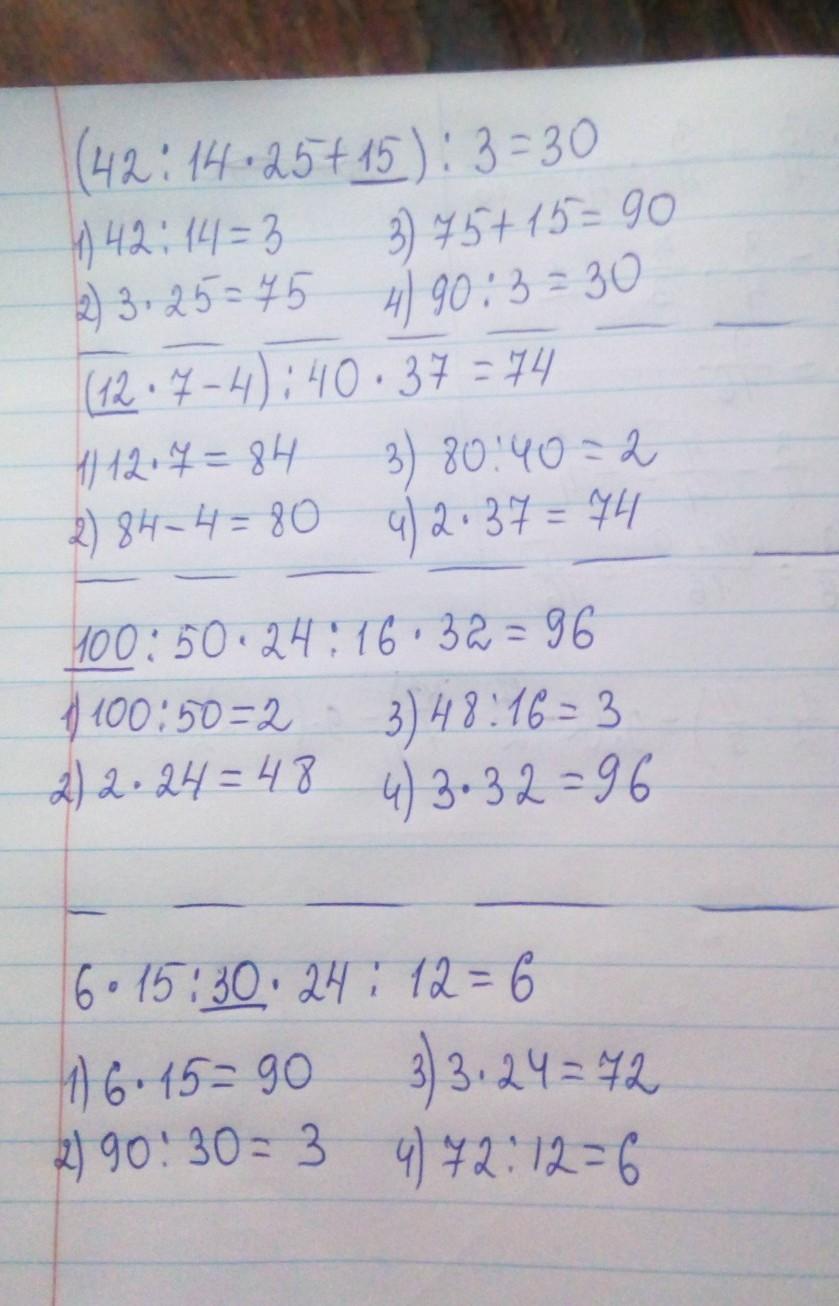 (42:14·25+15):3=30
1) 42:14=3 3) 75+15=90
2) 3·25=75 4) 90:3=30
(12·7-4):40·37=74
1) 12·7=84 3) 80:40=2
2) 84-4=80 4) 2·37=74
100:50·24:16·32=96
1) 100:50=2 3) 48:16=3
2) 2·24=48 4) 3·32=96
6·15:30·24:12=6
1) 6·15=90 3) 3·24=72
2) 90:30=3 4) 72:12=6